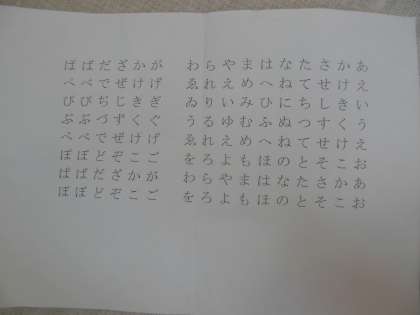 あえいうえおあお
かけきくけこかこ
させしすせそさそ
たてちつてとたと
なねにぬねのなの
はへひふへほはほ
まめみむめもまも
やえいゆえよやよ
られりるれろらろ
わゑゐうゑをわを
がげぎぐげごがご
かけきくけこかこ
ざぜじずぜぞざぞ
だでぢづでどだど
ばべびぶべぼばぼ
ぱぺぴぷぺぽぱぽ